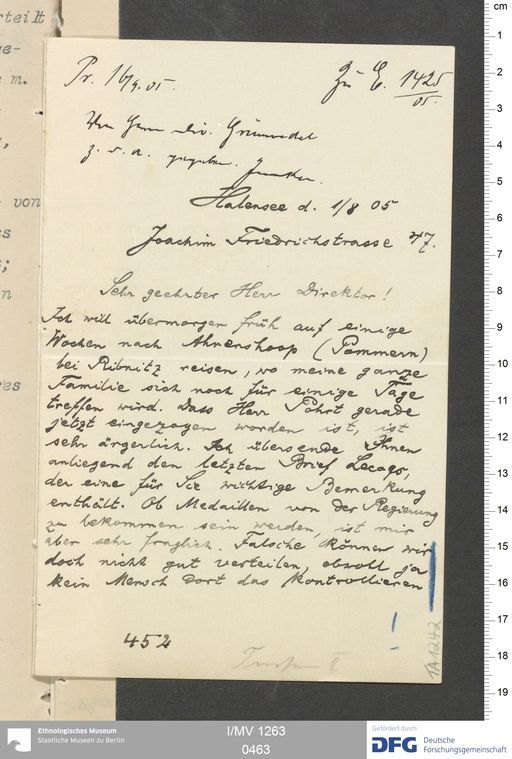 rteilt
ge-
m.
von
ss
t;
n
res
Pr. 16/9. 05.
Zu E. 1425
05.
Herrn Dir. Grünwedel
z. d. A.
Halensee d. 1/8 05
Joachim Friedrichstrasse 47.
Sehr geehrter Herr Direktor!
Ich will übermorgen früh auf einige
Wochen nach Ahrenshoop (Pommern)
bei Ribnitz reisen, wo meine ganze
Familie sich noch für einige Tage
treffen wird. Dass Herr Pohrt gerade
jetzt eingezogen worden ist, ist
sehr ärgerlich. Ich übersende Ihnen
anliegend den letzten Brief Lecoqs,
der eine für Sie wichtige Bemerkung
enthält. Ob Medaillen von der Regierung
zu bekommen sein werden, ist mir
aber sehr fraglich. Falsche können wir
doch nicht gut verteilen, obwoll ja
kein Mensch dort das kontrollieren
!
452
Turfan II
IA1242
cm
1
2
3
4
5
6
7
8
9
10
11
12
13
14
15
16
17
18
19
Ethnologisches Museum
Staatliche Museen zu Berlin
I/MV 1263
0463
Gefördert durch
DFG
Deutsche
Forschungsgemeinschaft